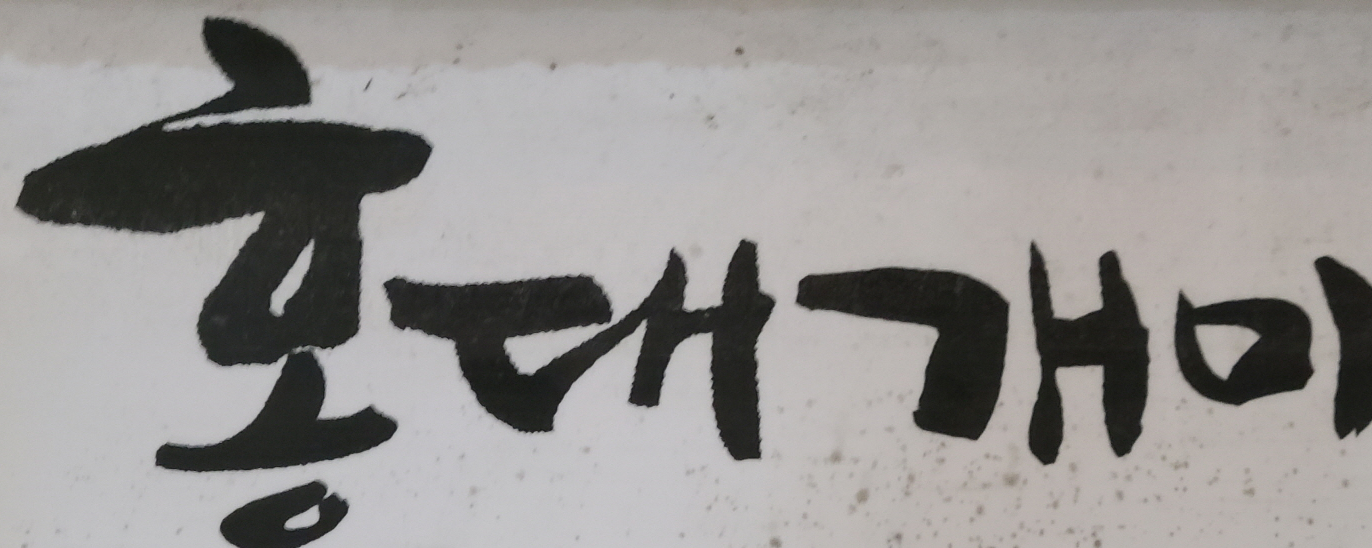 홍대개미